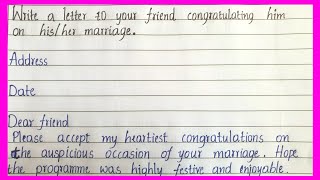 Write a letter to your friend congratulating him
on his/her marriage.
Address
Date
Dear friend
Please accept my heartiest congratulations on
the auspicious occasion of your marriage. Hope
the programme was highly festive and enjoyable.